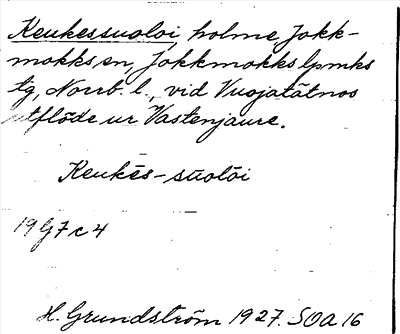 Keukessuoloi holme Jokk-
mokks sn, Jokkmokks lpmks
tg, Norrb. l., vid Vuojatätnos
utflöde ur Vastenjaure.
Keukēs-sūolōi
19 G7 c 4
H. Grundström 1927. SOA 16